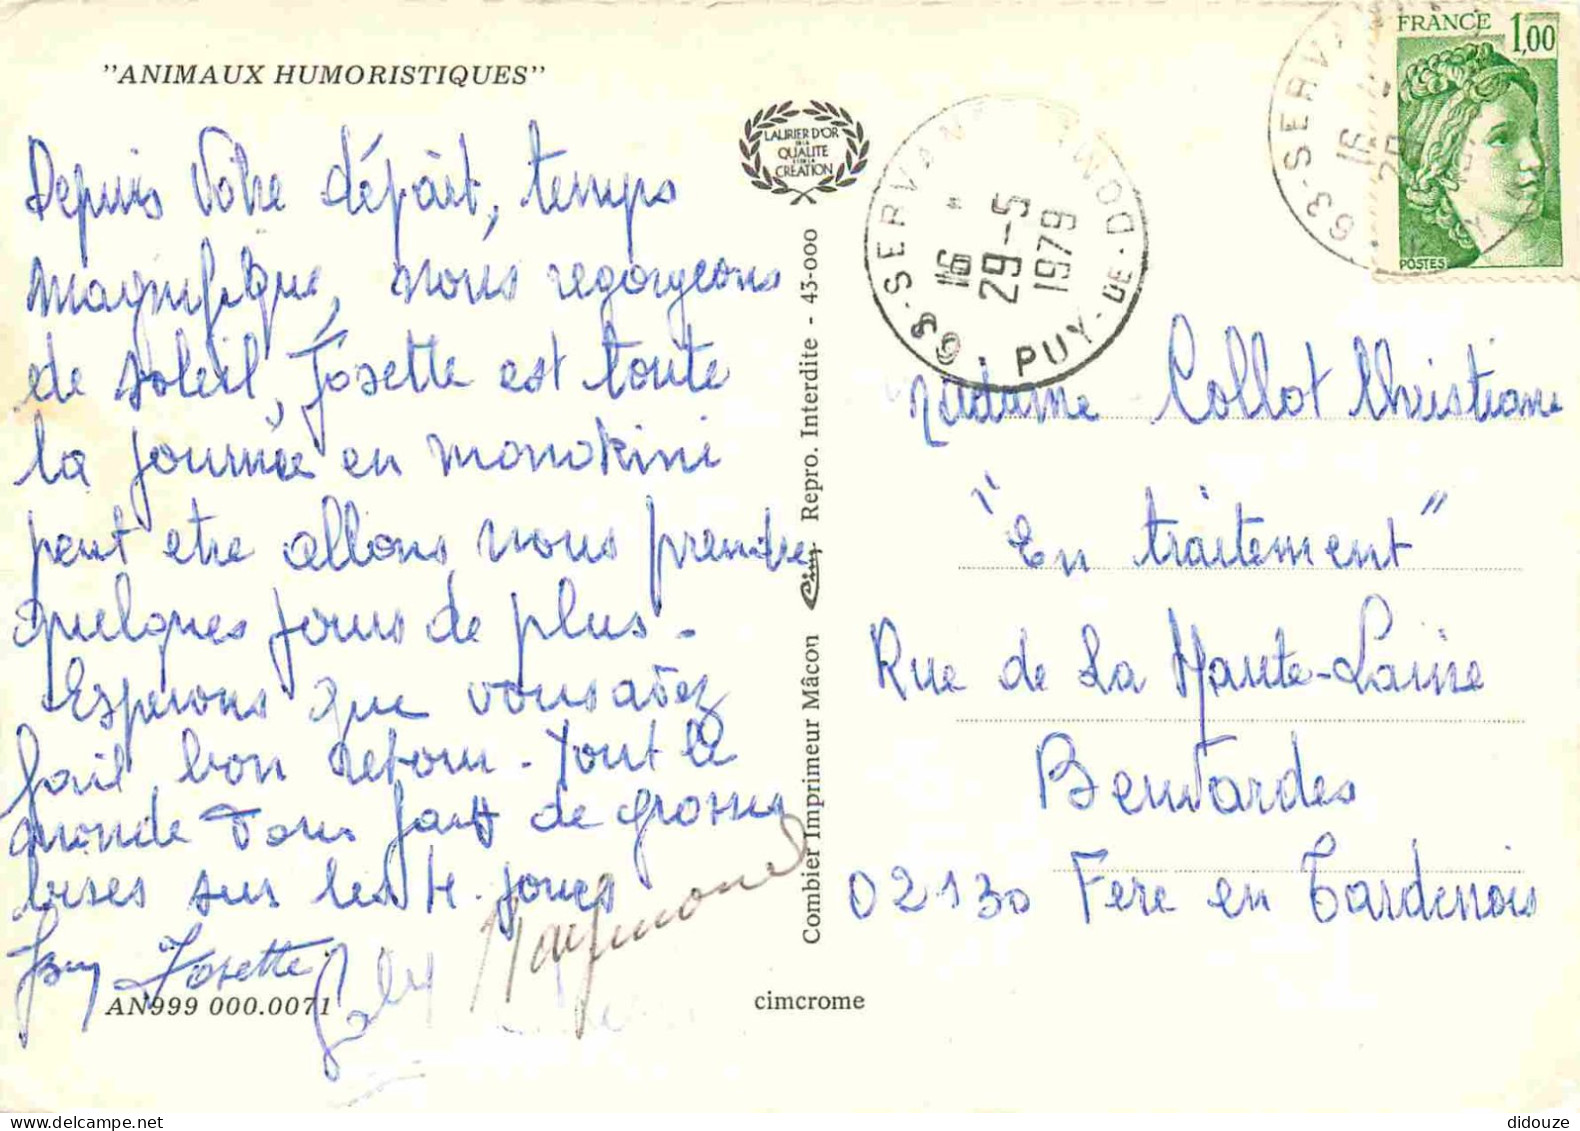 "ANIMAUX HUMORISTIQUES"
Depuis Votre départ, temps
magnifique, nous regorgeons
de soleil, Josette est toute
la journée en monokini
peut etre allons nous prendre
quelques jours de plus -
Esperons que vous avez
fait bon retour - Tout le
monde vous fait de grosses
bises sur les 4 joues
Josette
Raymond
AN999 000.0071
LAURIER D'OR
DE LA
QUALITE
ET DE LA
CREATION
Combier Imprimeur Mâcon Cim Repro. Interdite - 43-000
cimcrome
63-SERVANT PUY-DE-DOME
16
29-5
1979
FRANCE 1,00
POSTES
63-SERVA
16
Madame Collot Christiane
"En traitement"
Rue de La Haute-
02130 Fere en Tardenois
didouze